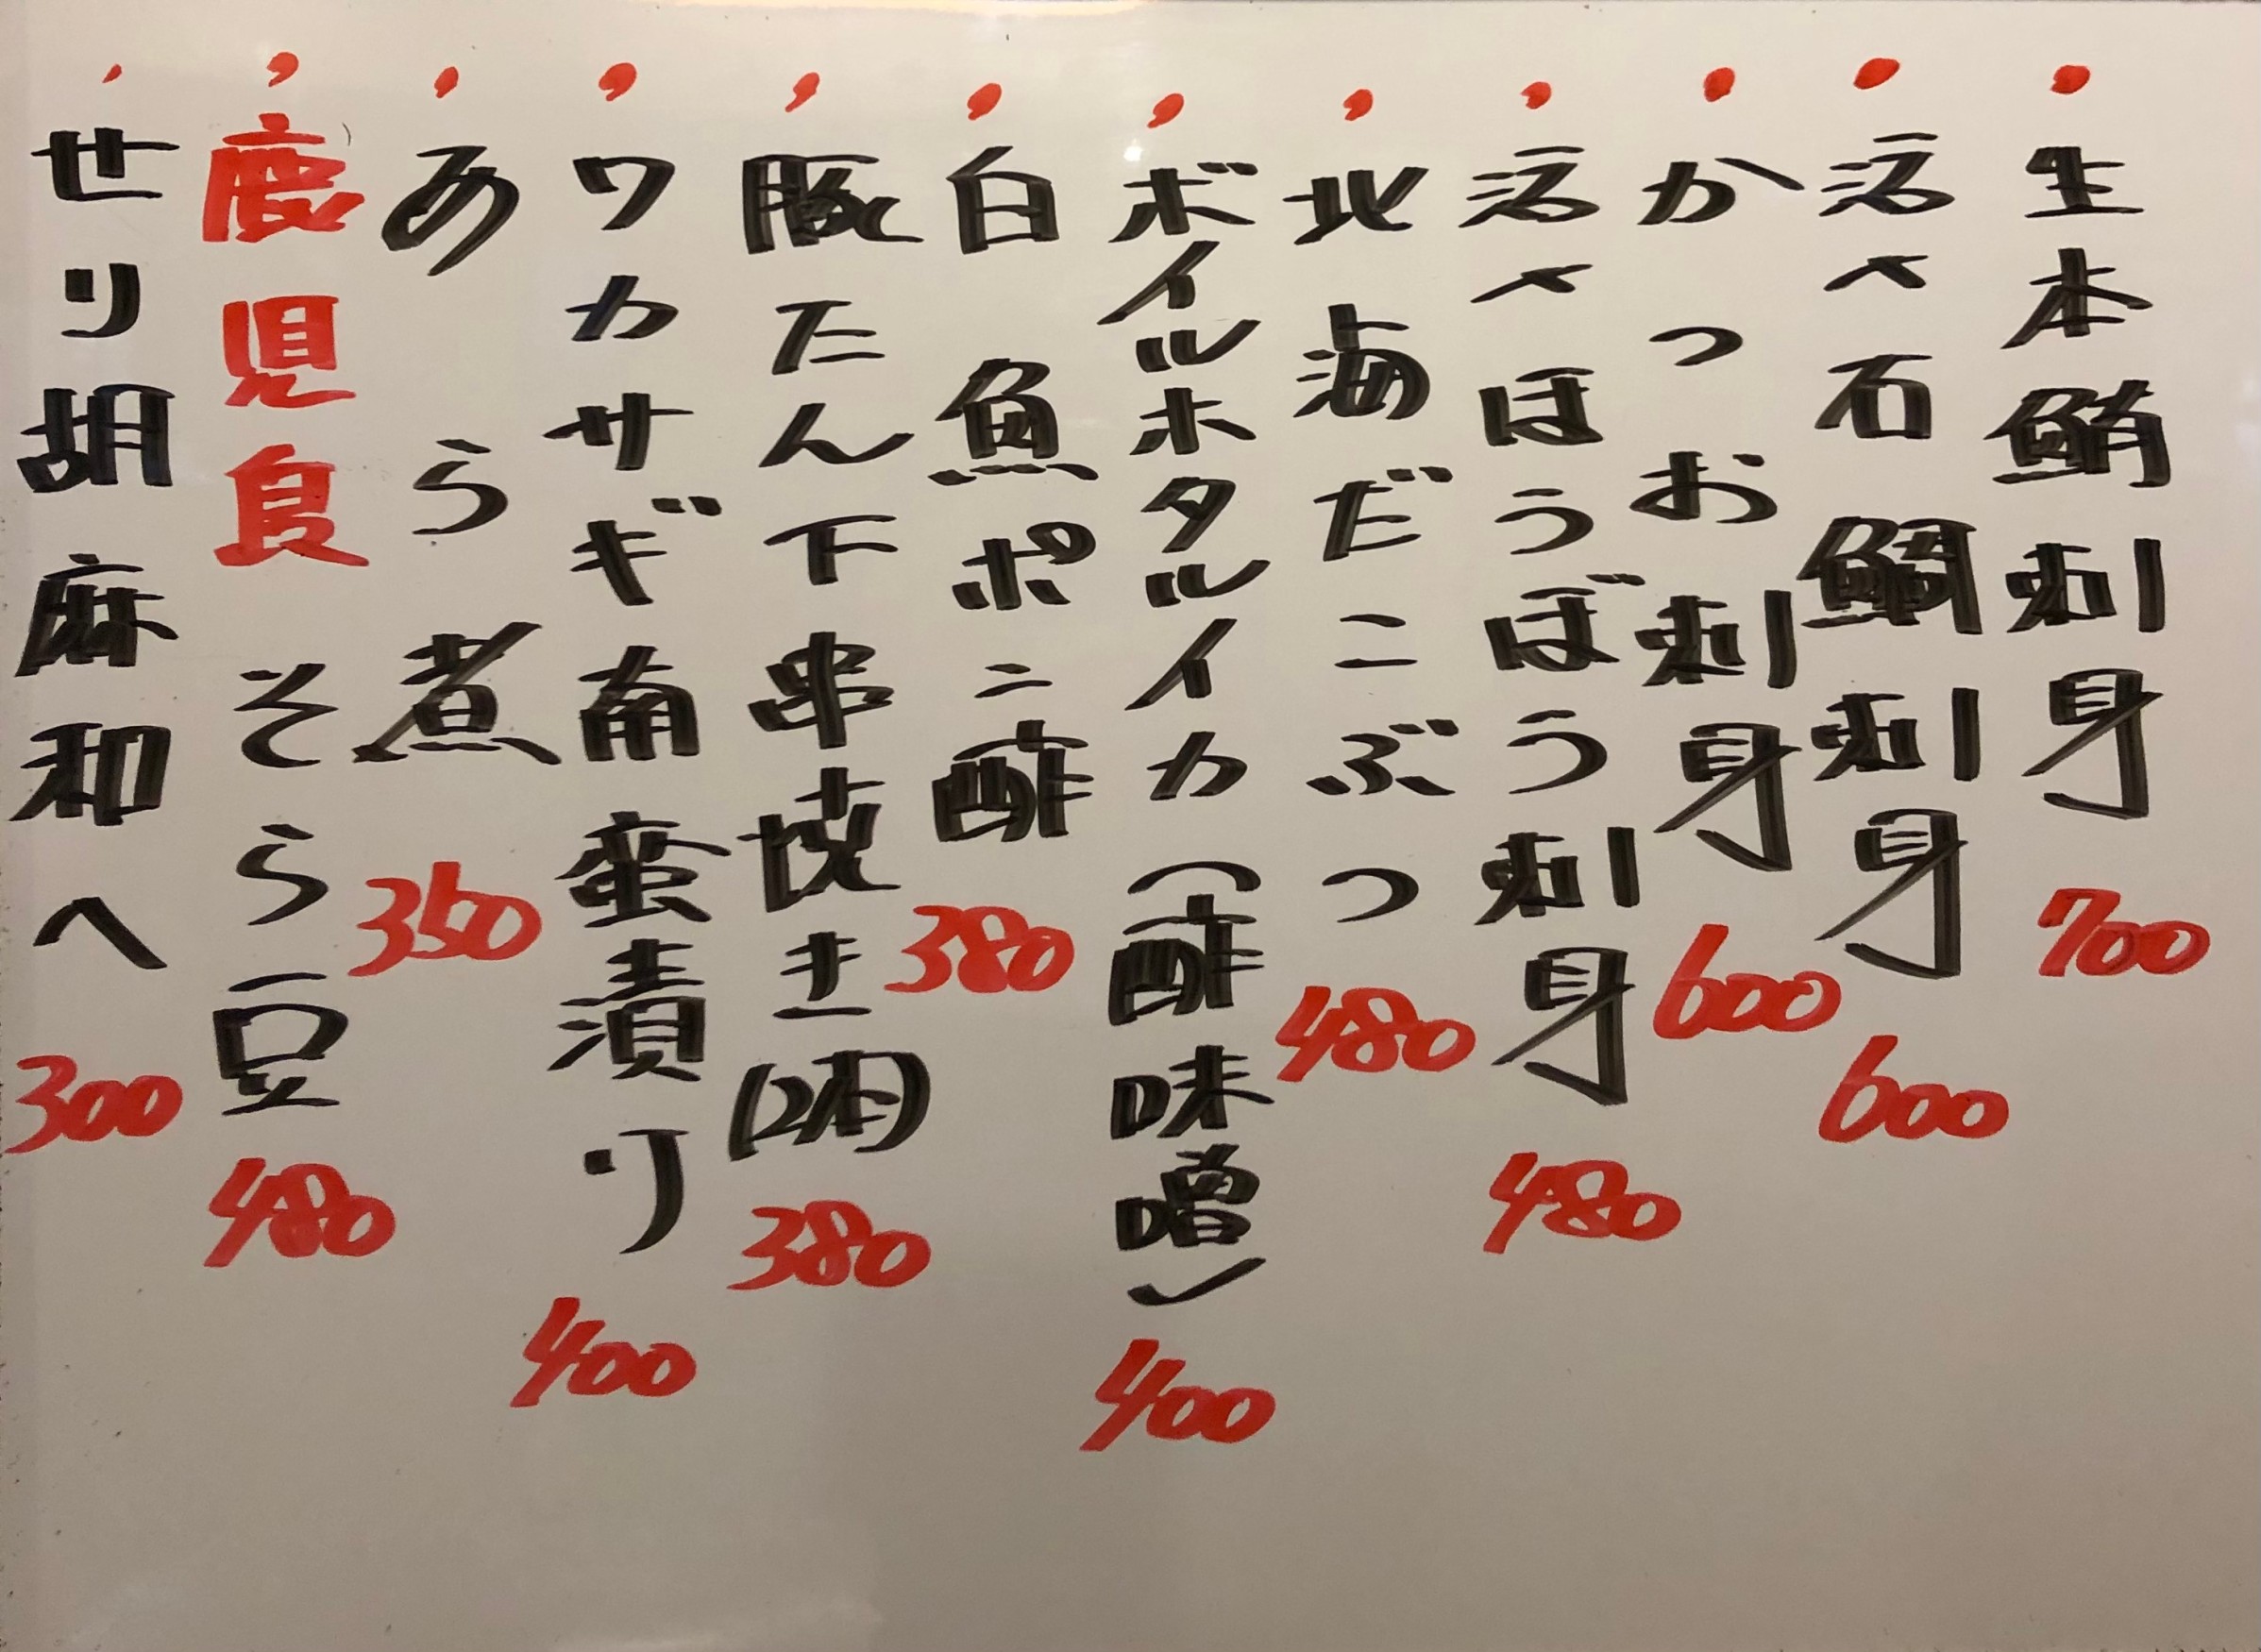 生本鮪刺身 700
活〆石鯛刺身 600
かつお刺身 600
活〆ほうぼう刺身 480
北海だこぶつ 480
ボイルホタルイカ(酢味噌) 400
白魚ポン酢 380
豚たん下串焼き(2本) 380
ワカサギ南蛮漬け 400
あら煮 350
鹿児島そら豆 480
せり胡麻和へ 300